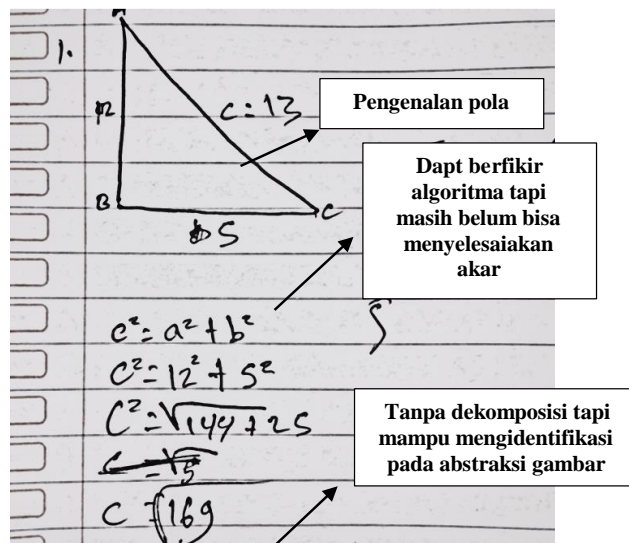 A
1.
12
c = 13
B
C
5
Pengenalan pola
Dapt berfikir
algoritma tapi
masih belum bisa
menyelesaiakan
akar
c² = a² + b²
C² = 12² + 5²
C² = √144 + 25
C = 169
Tanpa dekomposisi tapi
mampu mengidentifikasi
pada abstraksi gambar